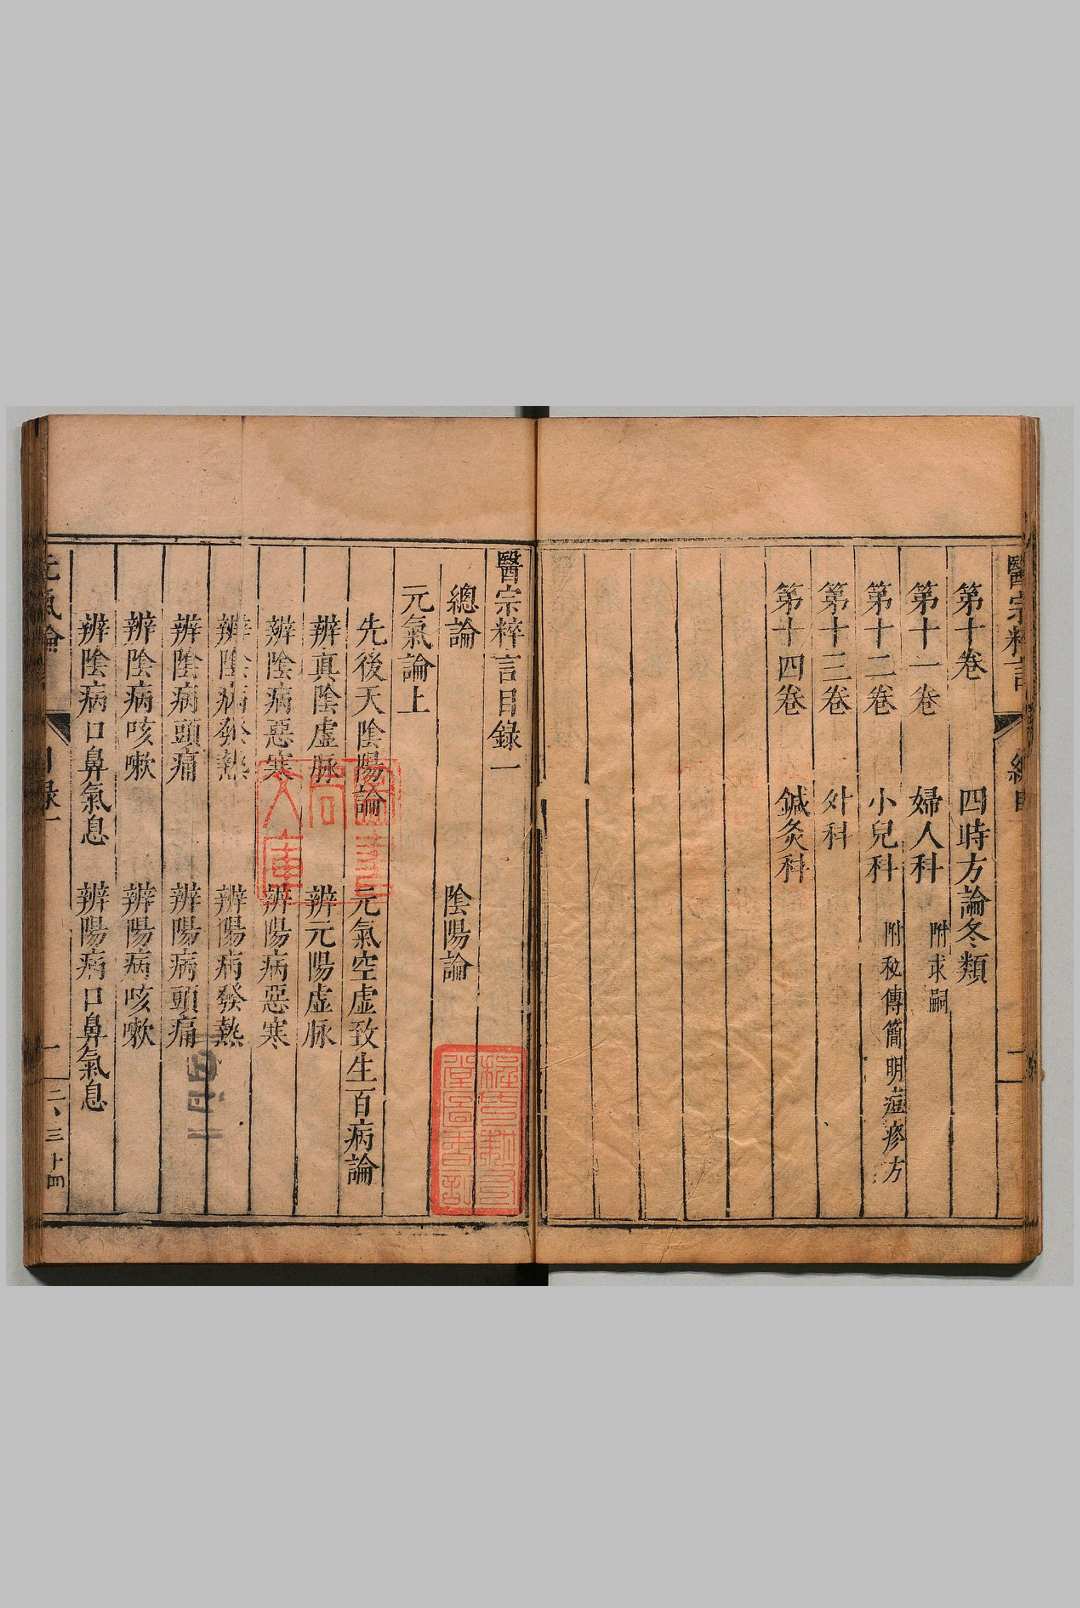 醫宗粹言 總目 二
第十卷 四時方論冬類
第十一卷 婦人科 附求嗣
第十二卷 小兒科 附秘傳簡明痘疹方
第十三卷 外科
第十四卷 鍼灸科
醫宗粹言目錄一
總論 陰陽論
元氣論上
先後天陰陽論 元氣空虛致生百病論
辨真陰虛脉 辨元陽虛脉
辨陰病惡寒 辨陽病惡寒
辨陰病發熱 辨陽病發熱
辨陰病頭痛 辨陽病頭痛
辨陰病咳嗽 辨陽病咳嗽
辨陰病口鼻氣息 辨陽病口鼻氣息
元氣論 目錄一 一